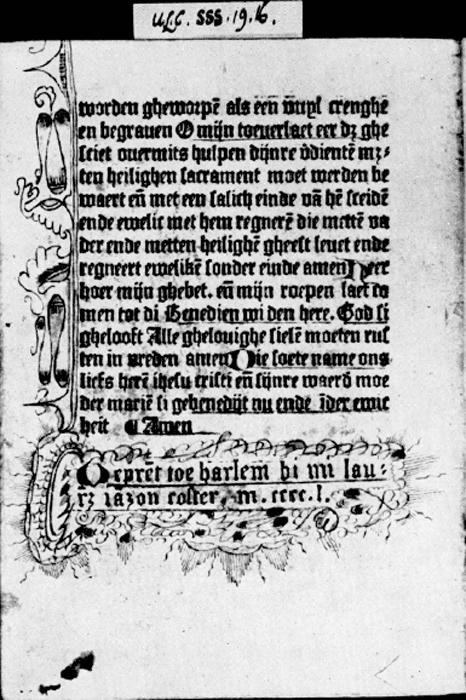 ULC. SSS.19.16.
worden gheworpē als een vuyl crenghe
en begrauen O mijn toeuerlaet eer dz ghe
sciet ouermits hulpen dijnre v̄dientē mz-
ten heilighen sacrament moet werden be
waert eñ met een salich einde vā hē sceidē
ende ewelic met hem regnerē die mettē va
der ende metten heilighē gheest leuet ende
regneert ewelikē sonder einde amen Heer
hoer mijn ghebet. eñ mijn roepen laet co
men tot di Benedien wi den here. God si
ghelooft Alle ghelouighe sielē moeten rus
ten in vreden amen Die soete name ons
liefs herē ihesu cristi eñ sijnre waerd moe
der mariē si gebenedijt nu ende īder ewic
heit ¶ Amen
Geprēt toe harlem bi mi lau-
rz iazon coster, m. cccc. l.